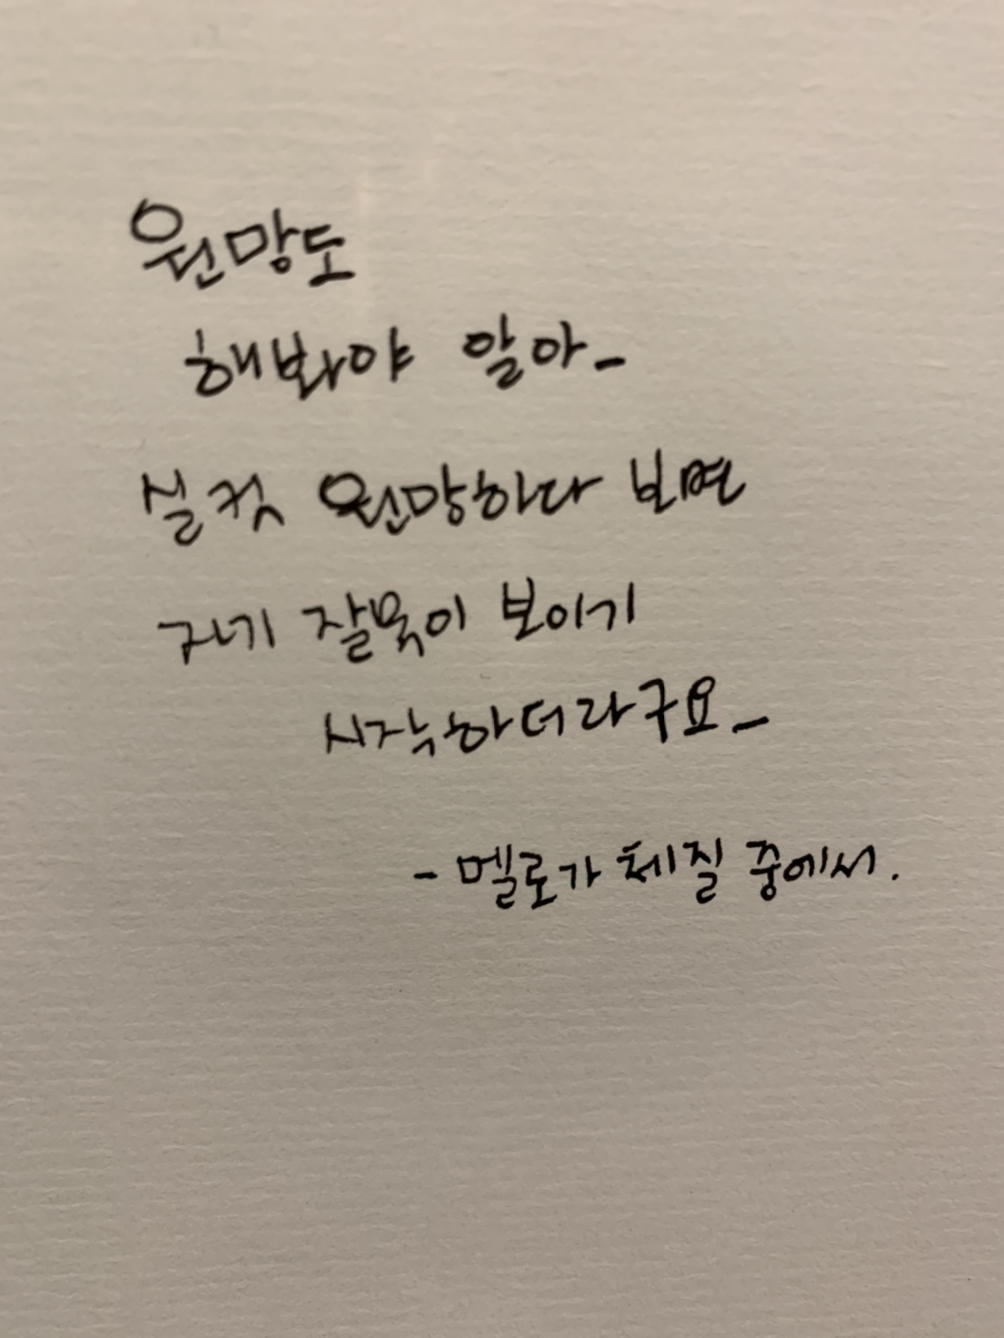 원망도
해봐야 알아-
실컷 원망하다 보면
자기 잘못이 보이기
시작하더라구요-
- 멜로가 체질 중에서.